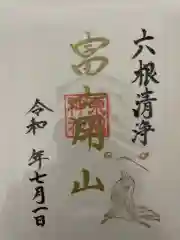 六根清浄
富士山
令和 年七月一日